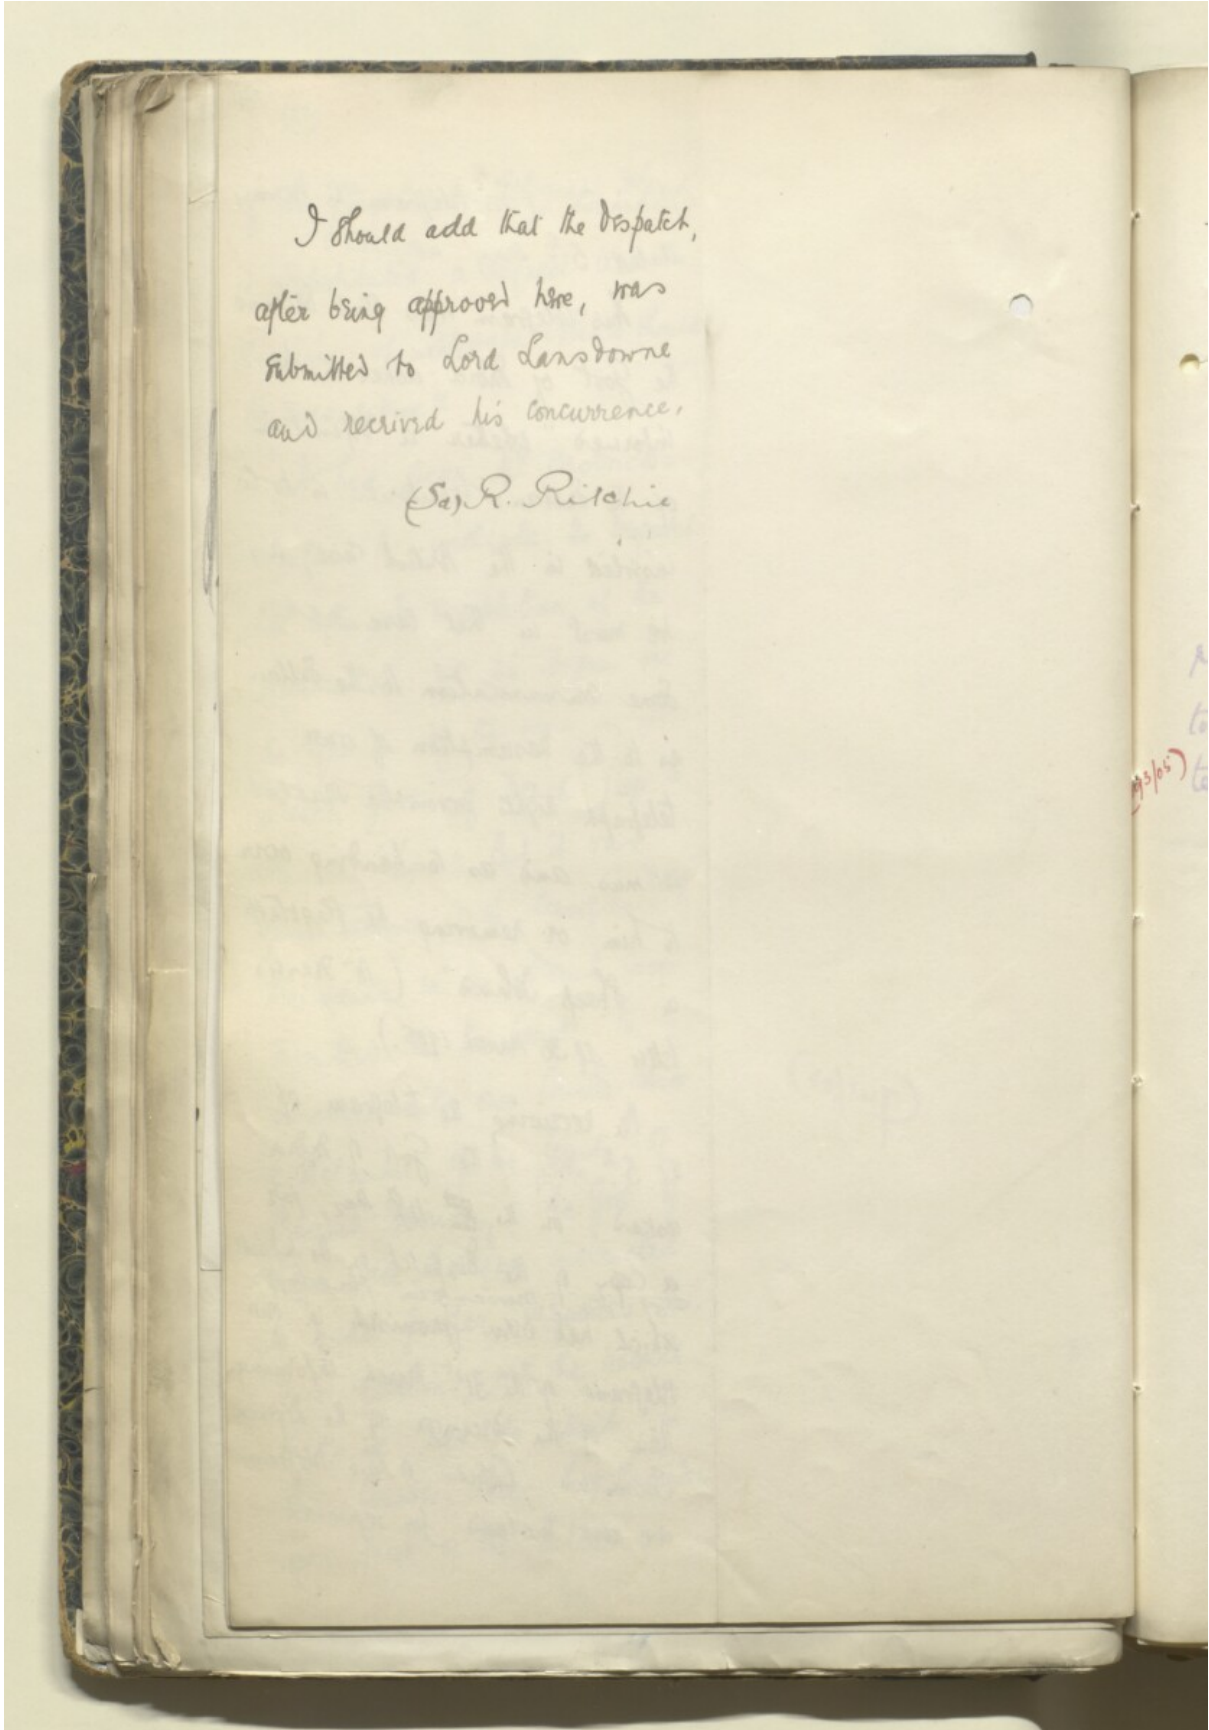 I should add that the Despatch,
after being approved here, was
submitted to Lord Lansdowne
and received his concurrence.
(Sd) R. Ritchie
93/05)
to
te